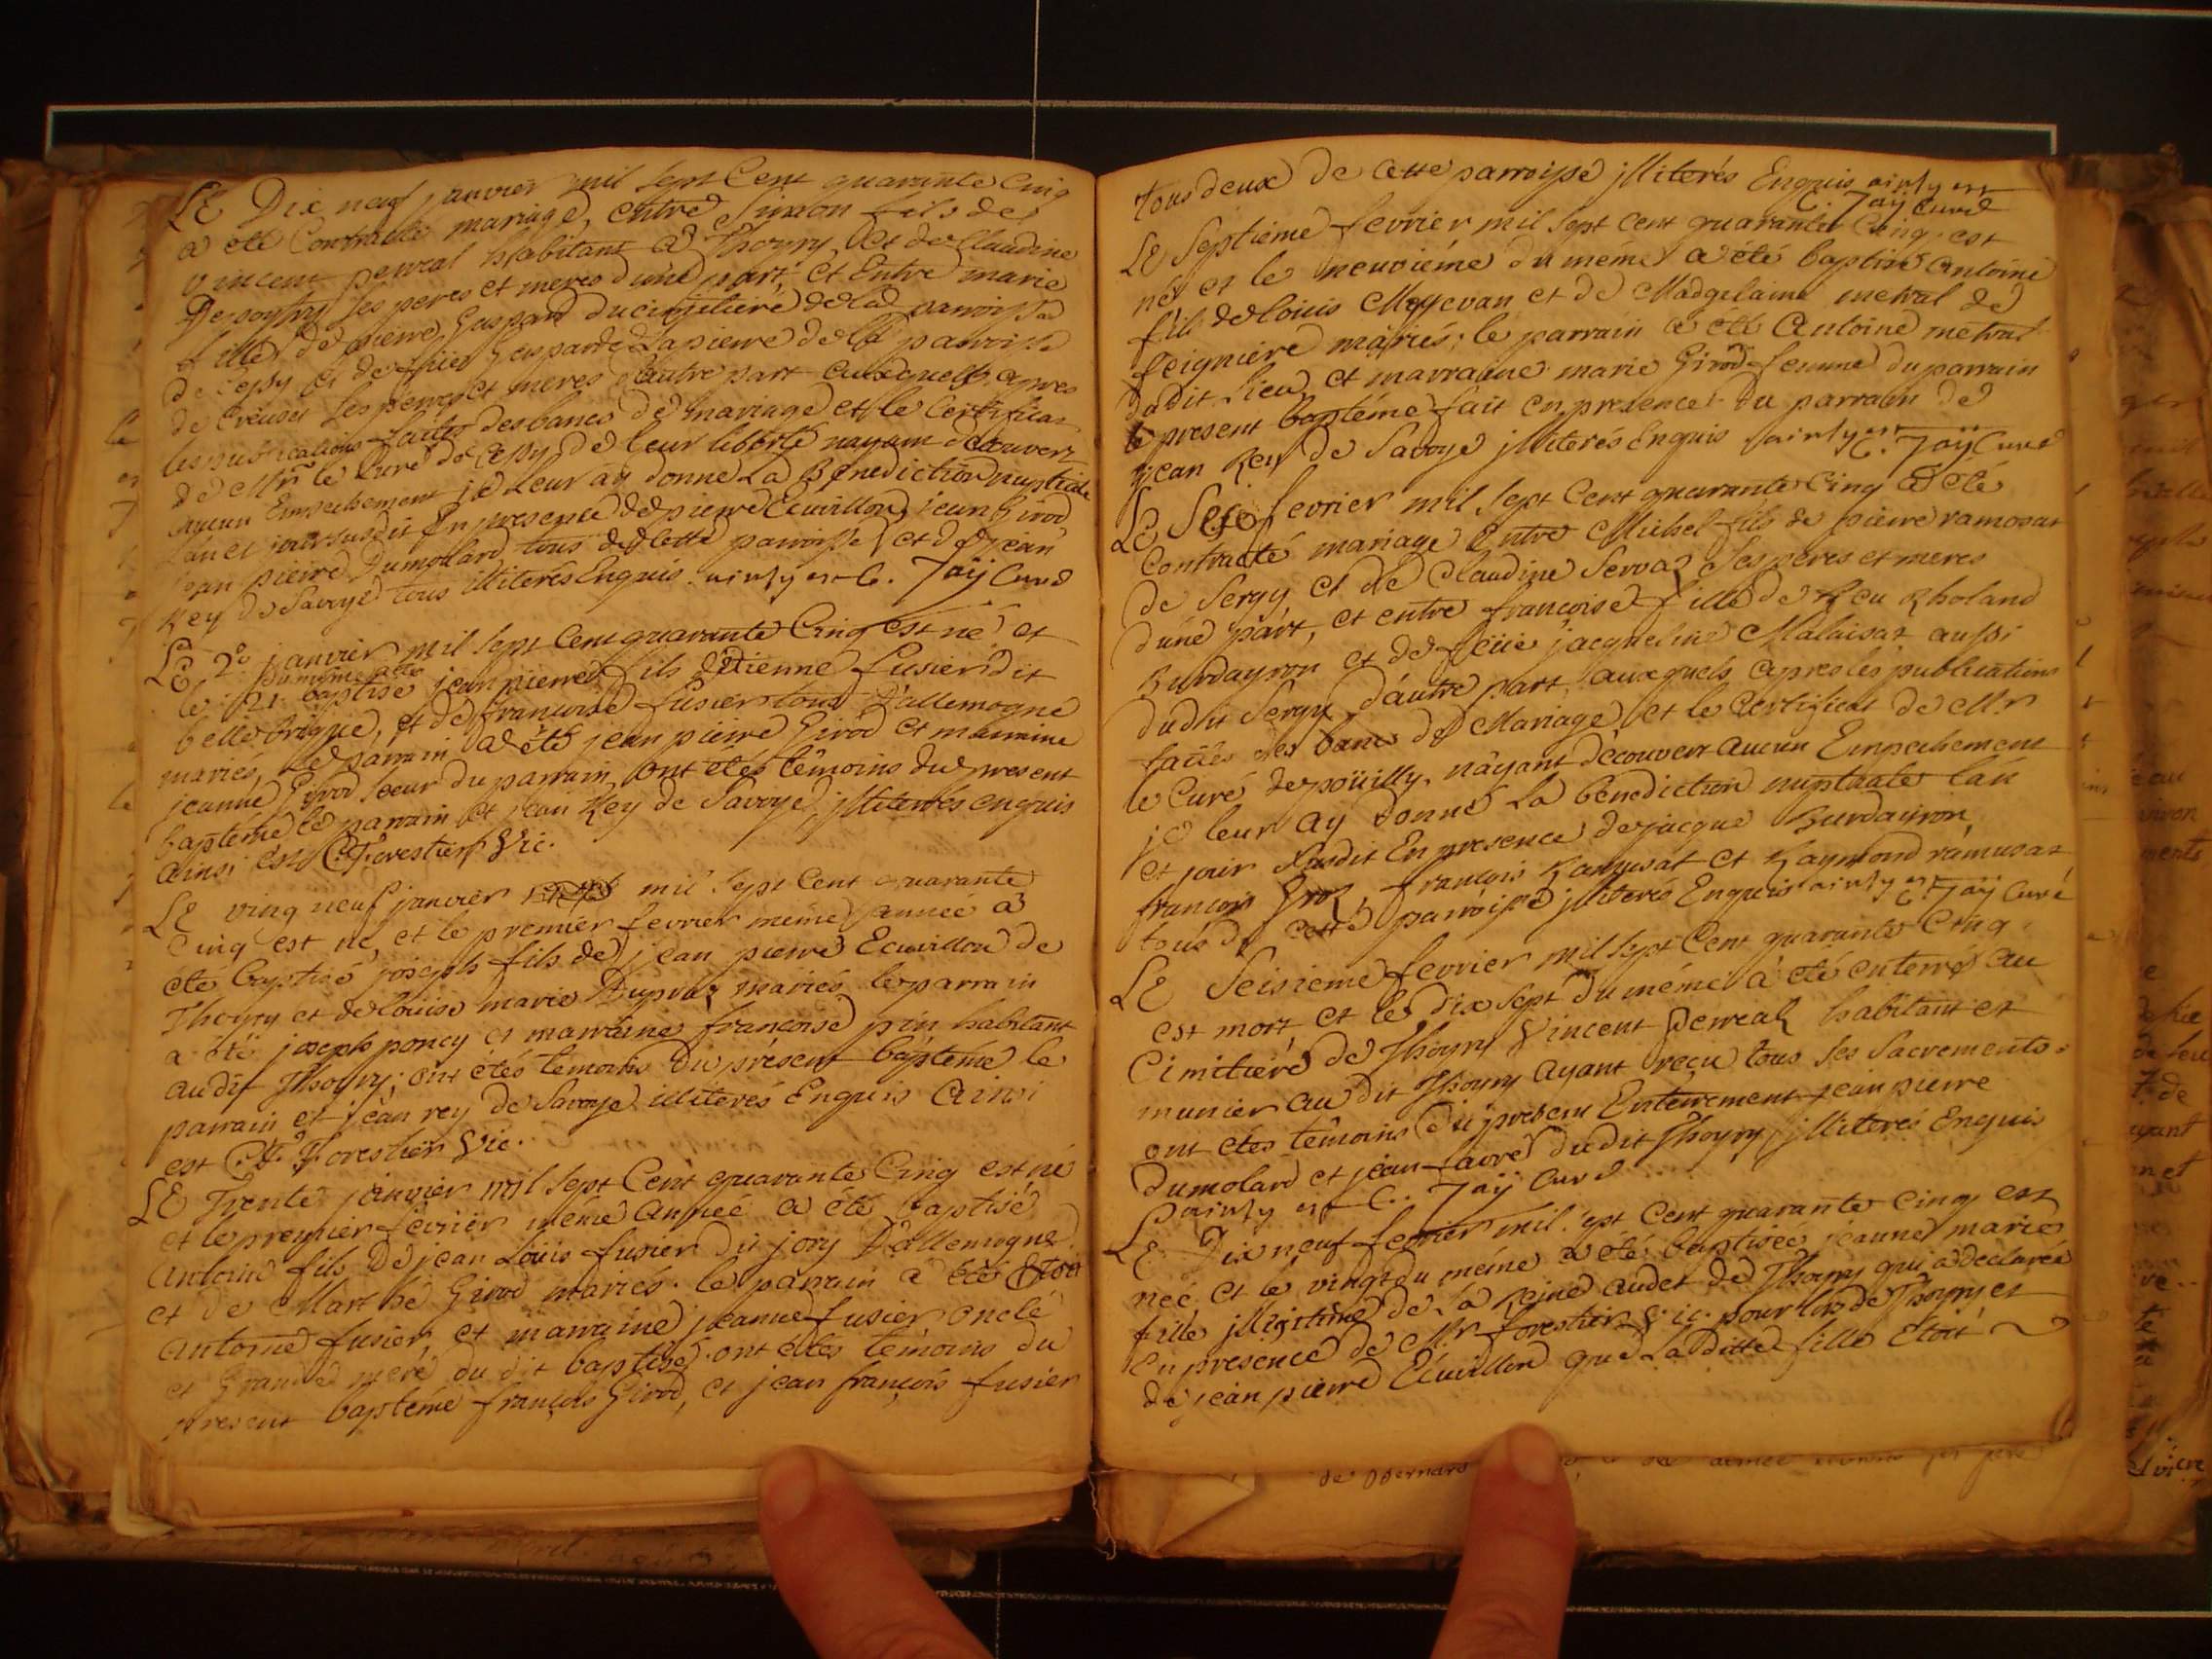 LE Dix neuf janvier mil sept Cent quarante Cinq
a été Contracté mariage, entre Simon fils de
vincent perreal habitant à Thoyry et de Claudine
ses peres et meres d'une part, et Entre marie
fille de pierre Gaspard de la parroisse
de Cessy et de feüe Gasparde Lapierre de la parroisse
de ses peres et meres d'autre part auxquels apres
les publications faites des bancs de mariage et le Certificat
de Mr le Curé de Cessy de leur liberté nayant découvert
aucun Empechement je leur ay donné La Benediction nuptiale
l'an et jour susdit En presence de pierre Ecuvillon, jean Girod
jean pierre Dumolard tous de Cette parroisse et de jean
Rey de Savoye tous illiterés Enquis. ainsy est C. Jaÿ Curé
LE 2° janvier mil sept Cent quarante Cinq est né et
le 21 du même a été baptisé jean pierre fils d'Etienne fusier dit
belle brique, et de francoise fusier tous D'allemogne
mariés, le parrain a été jean pierre Girod et marraine
jeanne Girod soeur du parrain, ont étés témoins du present
baptéme le parrain et jean Rey de Savoye, illiterés enquis
ainsi est C. F. Forestier Vic.
LE ving neuf janvier mil sept Cent quarante
Cinq est né, et le premier fevrier même année a
été baptisé joseph fils de jean pierre Ecuvillon de
Thoyry et de loüise marie Dupraz mariés le parrain
a été joseph poncy et marraine francoise pin habitant
audit Thoyry; ont étés témoins du présent baptéme le
parrain et jean rey de Savoye illiterés Enquis Ainsi
est C. F. Forestier Vic.
LE Trente janvier mil sept Cent quarante Cinq est né
et le premier fevrier même Année a été baptisé
Antoine fils De jean Loüis fusier dit jory D'allemogne
et de Marthe Girod mariés. le parrain a été
Antoine fusier, et marraine jeanne fusier oncle
et Grande mere du dit baptisé. ont étés temoins du
present baptéme françois Girod, et jean françois fusier
tous deux de Cette parroisse illiterés Enquis ainsy est
C. Jaÿ Curé
LE Septieme fevrier mil sept cent quarante Cinq est
né et le neuviéme du même a été baptisé antoine
fils de loüis et de Madgelaine metral de
feigniere mariés; le parrain a été Antoine metral
dudit lieu et marraine marie Girod femme du parrain
le present baptéme fait en presence du parrain de
jean Rey de Savoye illiterés Enquis ainsy est C. Jaÿ Curé
LE fevrier mil sept Cent quarante Cinq a été
Contracté mariage Entre Michel fils de pierre ramosat
de Sergy et de Claudine Servaz ses peres et meres
d'une part, et entre françoise fille de feu Rholand
Burdayron et de feüe jacqueline Malaisat aussi
dudit Sergy d'autre part auxquels apres les publications
faites des bancs de Mariage et le Certificat de Mr
le Curé de poüilly. n'ayant découvert aucun Empechement
je leur ay donné la bénediction nuptiale l'an
et jour susdit En presence de jacque Burdayron
francois Groz, francois Ramusat et Raymond ramusat
tous de cette parroisse illiterés Enquis ainsy est C. Jaÿ Curé
LE Seisieme fevrier mil sept Cent quarante Cinq
est mort, et le dix sept du même a été enterré au
Cimitiere de Thoyry Vincent Perreal habitant et
munier au dit Thoyry ayant reçu tous ses Sacrements.
ont étés témoins du present Enterrement jean pierre
Dumolard et jean favre du dit Thoyry, illiterés Enquis
ainsy est C. Jaÿ Curé
LE Dix neuf fevrier mil sept Cent quarante cinq est
neé et le vingt du même a été baptisée jeanne marie
fille illigitime de La Reine audet de Thoyry qui a declarée
En presence de Mr forestier Vic. pour lors de Thoyry et
de jean pierre Ecuvillon que La ditte fille Etoit